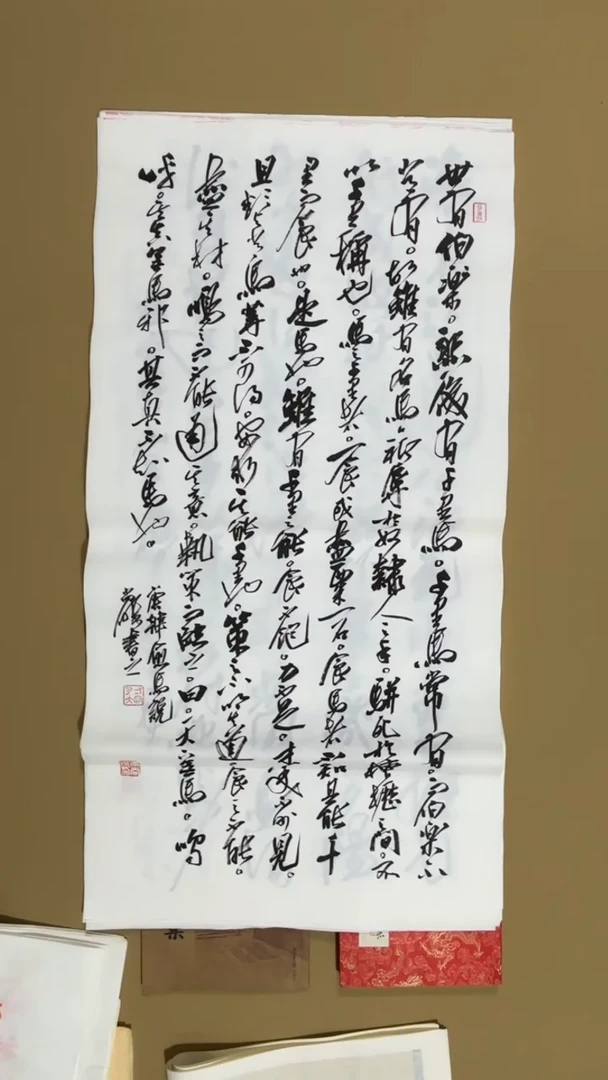 世有伯樂。然後有千里馬。千里馬常有。而伯樂不
常有。故雖有名馬。祇辱於奴隸人之手。駢死於槽櫪之間。不
以千里稱也。馬之千里者。一食或盡粟一石。食馬者不知其能千
里而食也。是馬也。雖有千里之能。食不飽。力不足。才美不外見。
且欲與常馬等不可得。安求其能千里也。策之不以其道。食之不能。
盡其材。鳴之而不能通其意。執策而臨之。曰。天下無馬。嗚
呼。其真無馬邪。其真不知馬也。
唐韓愈馬說
書之